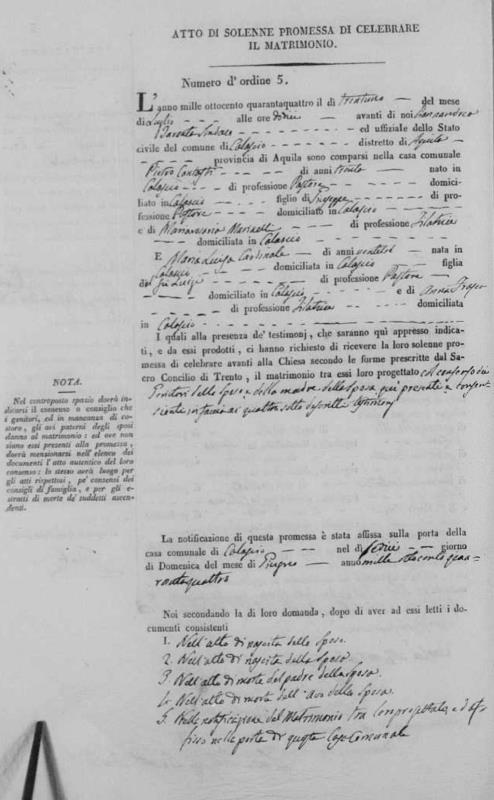 ATTO DI SOLENNE PROMESSA DI CELEBRARE
IL MATRIMONIO.
Numero d'ordine 5.
L'anno mille ottocento quarantaquattro il di trentuno — del mese
di Luglio — alle ore dieci — avanti di noi Giannandrea
Sindaco — ed uffiziale dello Stato
civile del comune di Calascio — distretto di Aquila
provincia di Aquila sono comparsi nella casa comunale
Pietro — di anni trenta — nato in
Calascio — di professione Pastore — domici-
liato in Calascio — figlio di Giuseppe — di pro-
fessione Pastore — domiciliato in Calascio
e di Mariantonia — di professione Filatrice
domiciliata in Calascio
E Maria Luigia Cardinale — di anni — nata in
Calascio — domiciliata in Calascio — figlia
del fu Luigi — di professione Pastore —
domiciliato in Calascio — e di Anna
di professione Filatrice — domiciliata
in Calascio
I quali alla presenza de' testimonj, che saranno quì appresso indica-
ti, e da essi prodotti, ci hanno richiesto di ricevere la loro solenne pro-
messa di celebrare avanti alla Chiesa secondo le forme prescritte dal Sa-
cro Concilio di Trento, il matrimonio tra essi loro progettato
Genitori dello Sposo e della madre della Sposa qui presenti e consen-
zienti insieme ai quattro sotto descritti testimonj
NOTA.
Nel controposto spazio dovrà in-
dicarsi il consenso o consiglio che
i genitori, ed in mancanza di co-
storo, gli avi paterni degli sposi
danno al matrimonio: ed ove non
siano essi presenti alla promessa,
dovrà menzionarsi nell'elenco dei
documenti l'atto autentico del loro
consenso: lo stesso avrà luogo per
gli atti rispettosi, pe' consensi dei
consigli di famiglia, e per gli e-
stratti di morte de' suddetti ascen-
denti.
La notificazione di questa promessa è stata affissa sulla porta della
casa comunale di Calascio — nel dì sedici — giorno
di Domenica del mese di Giugno — anno mille ottocento qua-
rantaquattro
Noi secondando la di loro domanda, dopo di aver ad essi letti i do-
cumenti consistenti
1. Nell'atto di nascita dello Sposo.
2. Nell'atto di nascita della Sposa
3. Nell'atto di morte del padre della Sposa.
4. Nell'atto di morte dell'Avo della Sposa.
5. Nella notificazione del Matrimonio tra ed af-
fisso nella porta di questa Casa Comunale